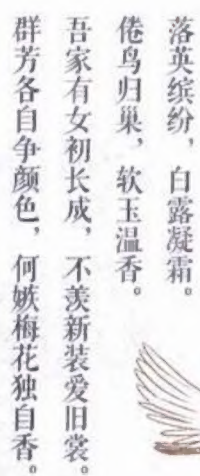 落英缤纷，白露凝霜。
倦鸟归巢，软玉温香。
吾家有女初长成，不羡新装爱旧裳。
群芳各自争颜色，何嫉梅花独自香。